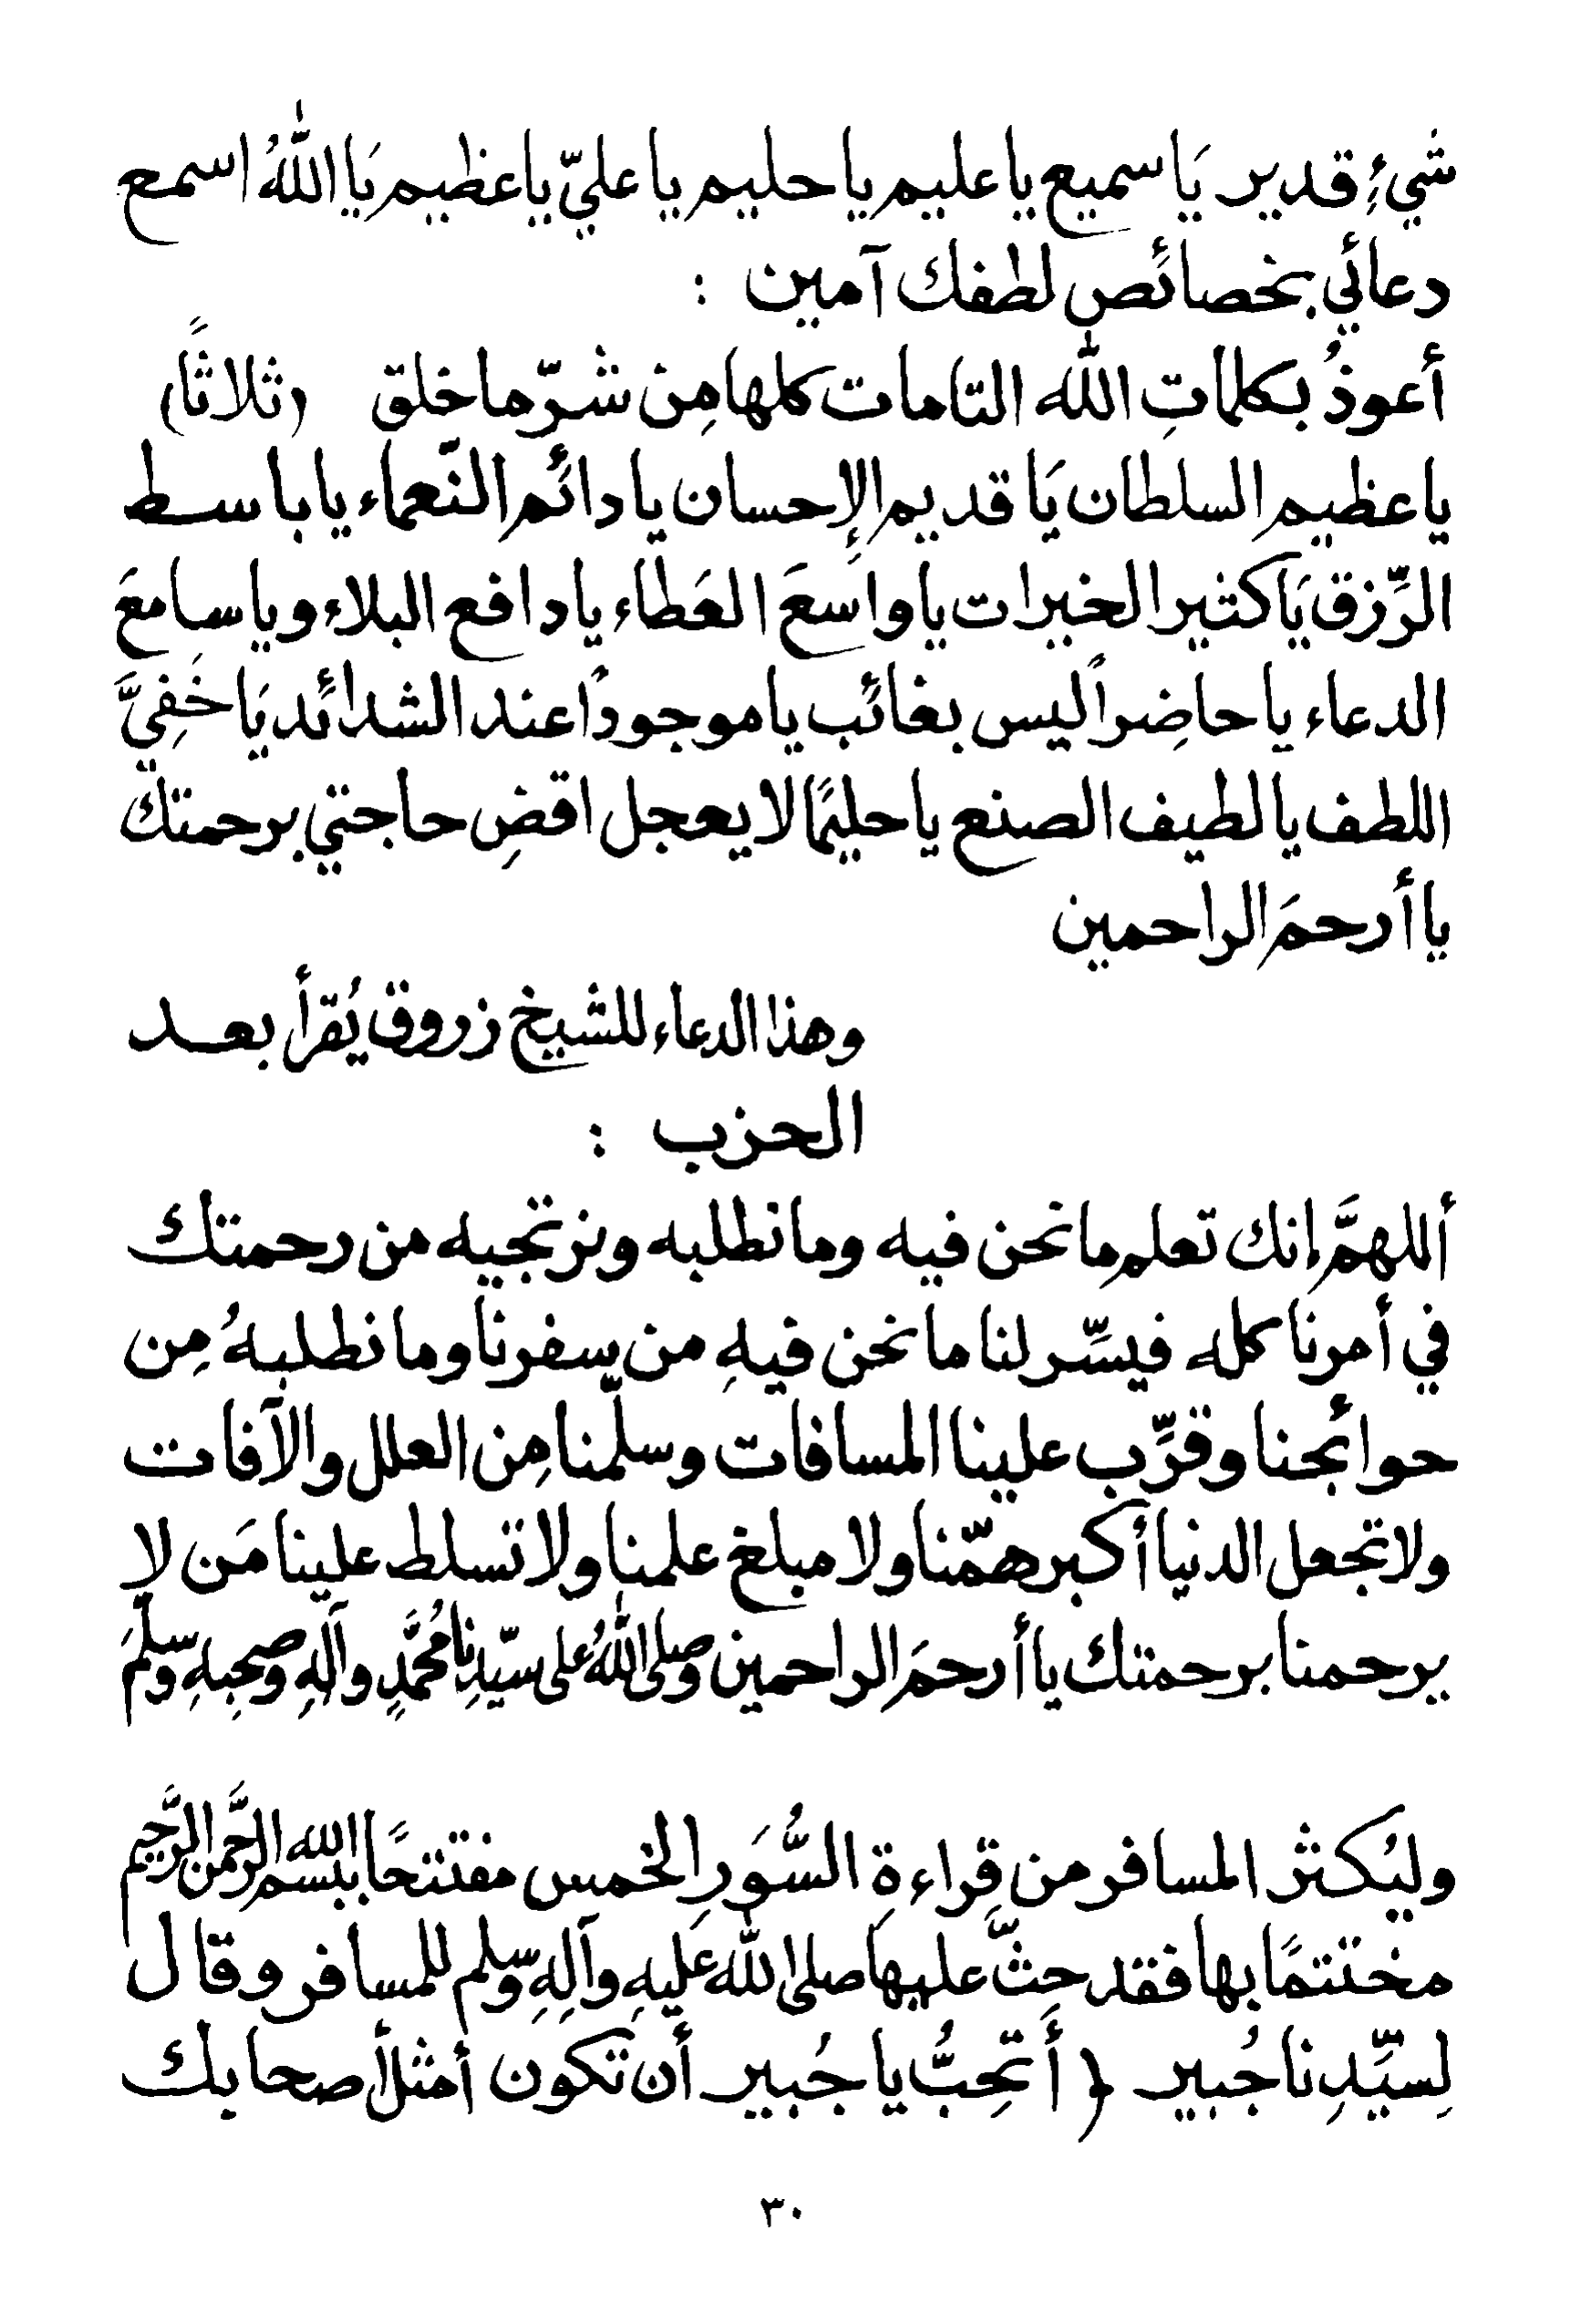 شيءٍ قدير يَا سميع يا عليم يا حليم يا عليّ يا عظيم يَا اللهُ اسمع
دعائي بخصائص لطفك آمين :
أعوذُ بكلماتِ الله التامات كلها مِن شرّ ما خلق (ثلاثًا)
يا عظيم السلطان يَا قديم الإحسان يا دائم النّعماء يا باسط
الرِّزق يَا كثير الخيرات يا واسعَ العَطاء يا دافع البلاء ويا سامعَ
الدعاء يا حاضِراً ليس بغائب يا موجوداً عند الشدائد يَا خَفِيَّ
اللطف يا لطيف الصنع يا حليمًا لا يعجل اقضِ حاجتي برحمتك
يا أرحمَ الراحمين
وهذا الدعاء للشيخ زروق يُقرأ بعد
الحزب :
أللهمَّ إنك تعلم ما نحن فيه وما نطلبه ونرتجيه من رحمتك
في أمرنا كله فيسِّر لنا ما نحن فيهِ من سفرنا وما نطلبهُ مِن
حوائجنا وقرِّب علينا المسافات وسلّمنا مِن العلل والآفات
ولا تجعل الدنيا أكبر همّنا ولا مبلغ علمنا ولا تسلط علينا مَن لا
يرحمنا برحمتك يا أرحمَ الراحمين وصلى اللهُ على سيّدِنا مُحمَّدٍ وآلِهِ وصحبِهِ وسلّمَ
وليُكثر المسافر من قِراءةِ السُّوَرِ الخمس مفتتحًا ببسم الله الرَّحمن الرَّحيم
مختتمًا بها فقد حثَّ عليها صلى الله عَليهِ وآلِهِ وسلم للمسافر وقال
لِسيِّدِنا جُبير ( أَتحِبُّ يا جُبير أن تكون أمثل أصحابك
٣٠